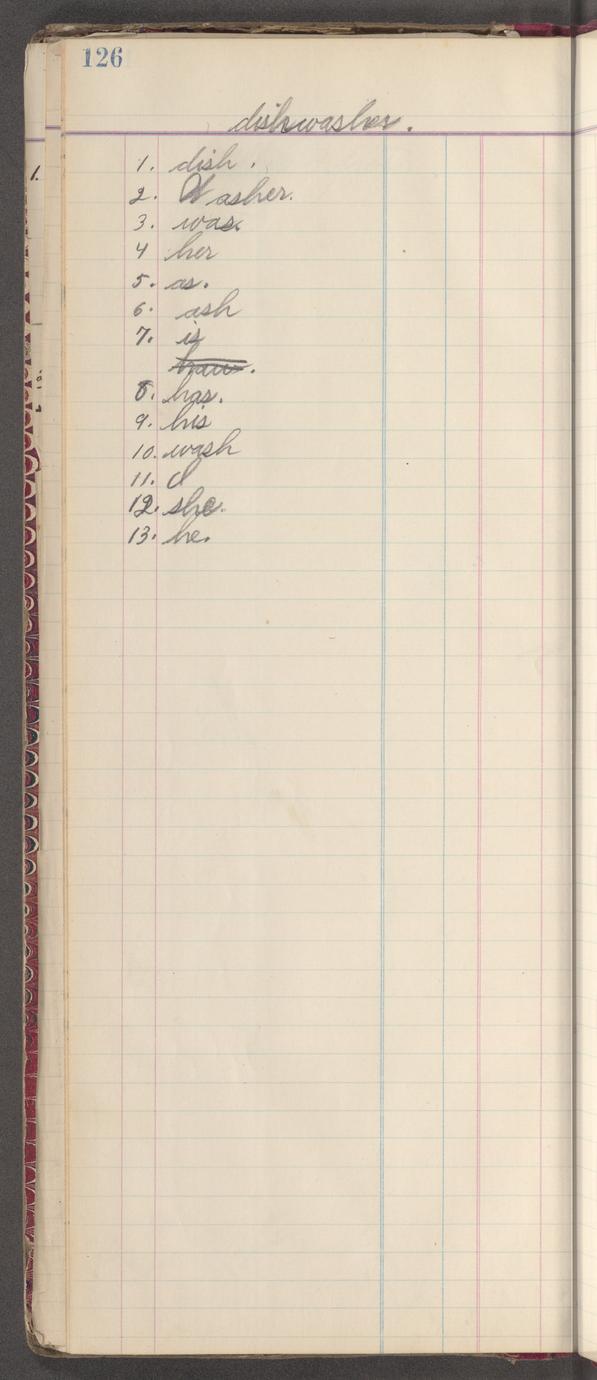 126
dishwasher.
1.
1. dish.
2. Washer.
3. was.
4 her
5. as.
6. ash
7. is
8. has.
9. his
10. wash
11. I
12. she.
13. he.